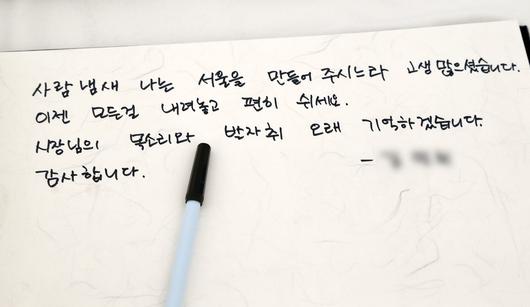 사람 냄새 나는 서울을 만들어 주시느라 고생 많으셨습니다.
이젠 모든걸 내려놓고 편히 쉬세요.
시장님의 목소리와 반자취 오래 기억하겠습니다.
감사합니다.
–